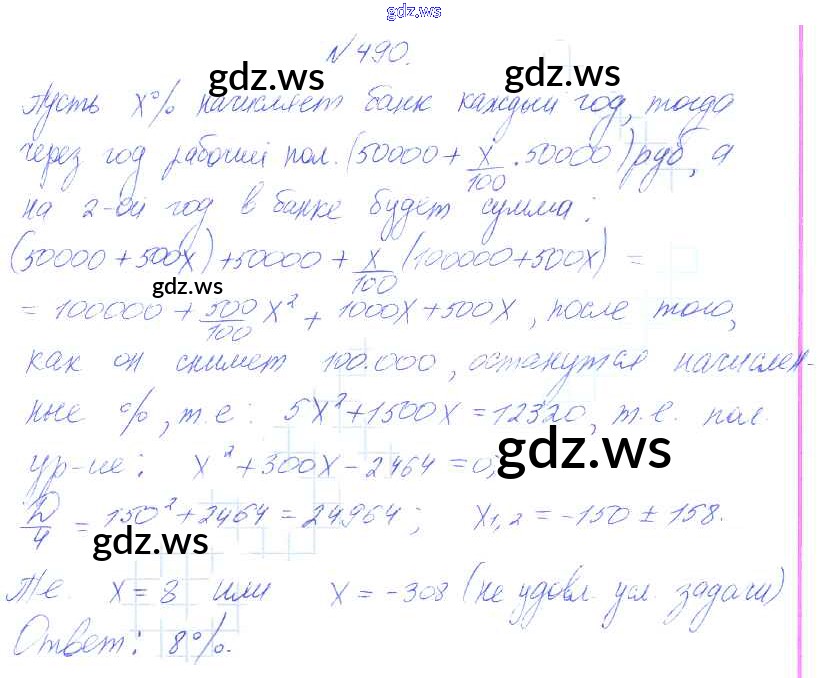 gdz.ws
№490.
gdz.ws gdz.ws
Пусть x% начисляет банк каждый год, тогда
через год рабочий пол. (50000 + x/100 · 50000) руб, а
на 2-ой год в банке будет сумма:
(50000 + 500x) + 50000 + x/100 (100000 + 500x) =
gdz.ws
= 100000 + 500/100 x² + 1000x + 500x, после того,
как он снимет 100.000, останутся начислен-
ные %, т.е: 5x² + 1500x = 12320, т.е. пол.
gdz.ws
ур-ие: x² + 300x - 2464 = 0;
D/4 = 150² + 2464 = 24964; x1,2 = -150 ± 158.
gdz.ws
Т.е. x = 8 или x = -308 (не удовл. усл. задачи)
Ответ: 8%.